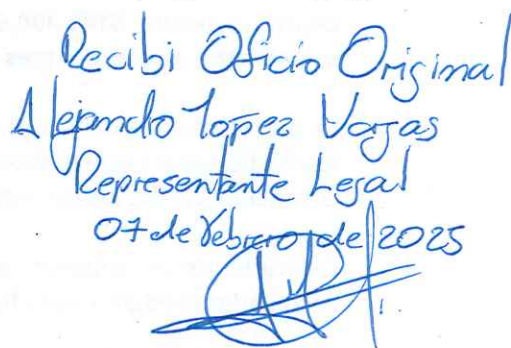 Recibi Oficio Original
Alejandro Lopez Vargas
Representante Legal
07 de Febrero de 2025